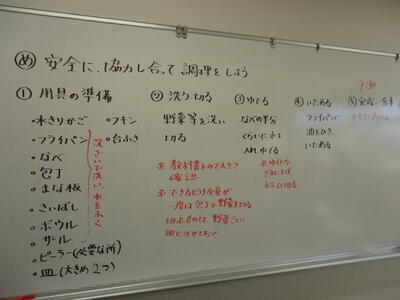 め 安全に、協力し合って調理をしよう
① 用具の準備
・水きりかご ・フキン
・フライパン ・台ふき
・なべ
・包丁
・まな板
・さいばし
・ボウル
・ザール
・ピーラー(必要な所)
・皿(大きめ2つ)
洗ざいで洗い、水をふく
② 洗う、切る
野菜等を洗い
切る
※ 教科書をみて大きさ
確認
※ できるだけ全員が
一度は包丁で野菜を切る
切ったものは 野菜ごとに
③ ゆでる
なべの半分
くらいに水を
入れ、ゆでる
※ ゆだったら
ざるに上げ
水を切る
④ いためる
フライパンに
油をひき、
いためる
⑤ 完成
9:50